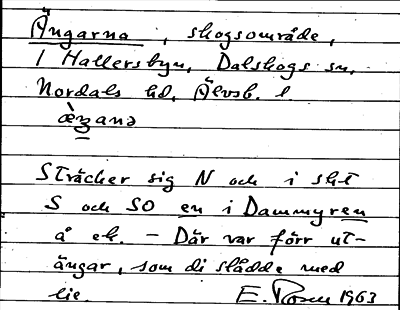 Ängarna, skogsområde,
I Hallersbyn, Dalskogs sn,
Nordals hd, Älvsb. l.
æ̀ŋana
Sträcker sig N och i skt
S och SO en i Dammyren
å ek. - Där var förr ut-
ängar, som di slådde med
lie. E. Rosen 1963